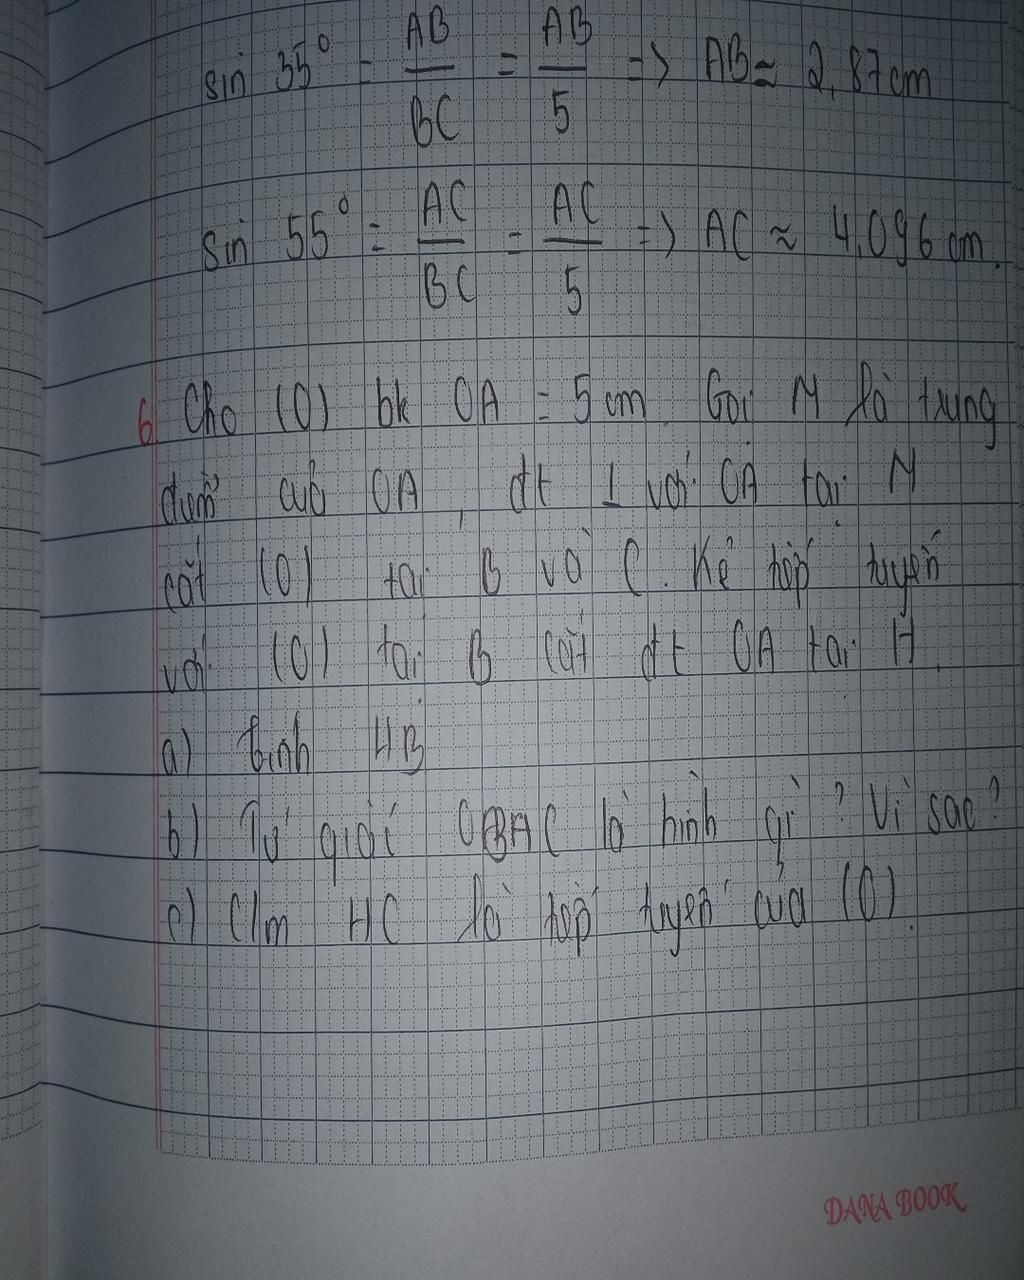 sin 35° = AB/BC = AB/5 => AB ≈ 2,87cm
sin 55° = AC/BC = AC/5 => AC ≈ 4,096 cm.
6 Cho (O) bk OA = 5 cm. Gọi M là trung
điểm của OA, đt ⊥ với OA tại M
cắt (O) tại B và C. Kẻ tiếp tuyến
với (O) tại B cắt đt OA tại H.
a) Tính HB
b) Tứ giác OBAC là hình gì? Vì sao?
c) C/m HC là tiếp tuyến của (O).
DANA BOOK